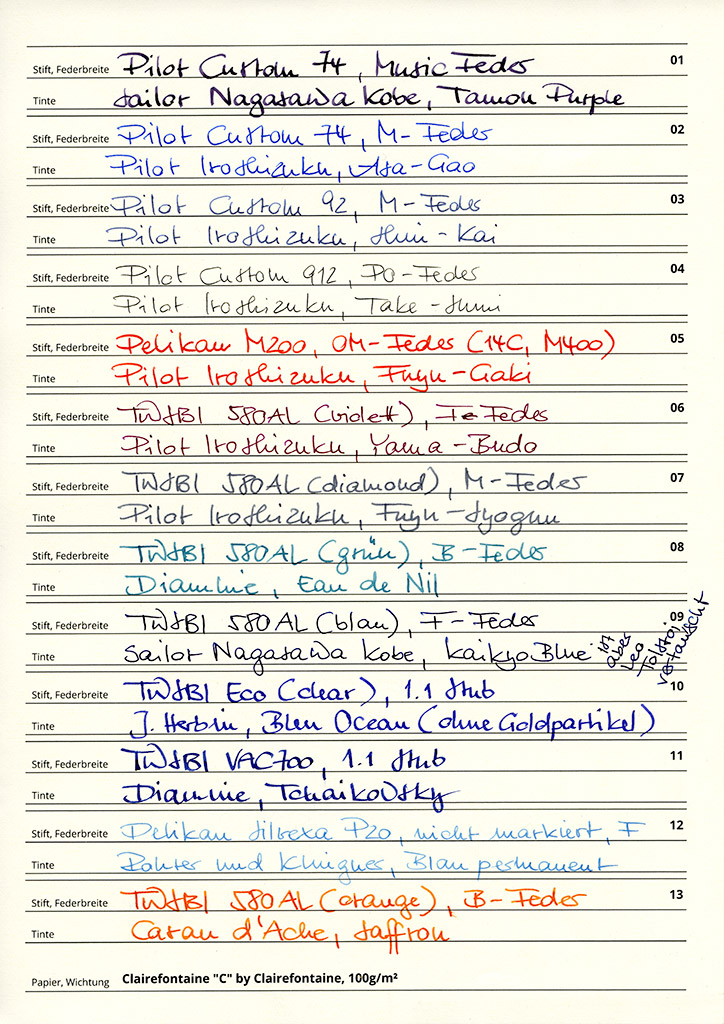 Stift, Federbreite Pilot Custom 74, Music Feder 01
Tinte Sailor Nagasawa Kobe, Tamon Purple
Stift, Federbreite Pilot Custom 74, M-Feder 02
Tinte Pilot Iroshizuku, Asa-Gao
Stift, Federbreite Pilot Custom 92, M-Feder 03
Tinte Pilot Iroshizuku, Shin-Kai
Stift, Federbreite Pilot Custom 912, PO-Feder 04
Tinte Pilot Iroshizuku, Take-Sumi
Stift, Federbreite Pelikan M200, OM-Feder (14C, M400) 05
Tinte Pilot Iroshizuku, Fuyu-Gaki
Stift, Federbreite TWSBI 580AL (violett), Feder 06
Tinte Pilot Iroshizuku, Yama-Budo
Stift, Federbreite TWSBI 580AL (diamond), M-Feder 07
Tinte Pilot Iroshizuku, Fuyu-Syogun
Stift, Federbreite TWSBI 580AL (grün), B-Feder 08
Tinte Diamine, Eau de Nil
Stift, Federbreite TWSBI 580AL (blau), F-Feder 09
Tinte Sailor Nagasawa Kobe, Kaikyo Blue
ist
aber
Leo
Tolstoj
vertauscht
Stift, Federbreite TWSBI Eco (clear), 1.1 Stub 10
Tinte J. Herbin, Bleu Ocean (ohne Goldpartikel)
Stift, Federbreite TWSBI VAC700, 1.1 Stub 11
Tinte Diamine, Tchaikovsky
Stift, Federbreite Pelikan Silvexa P20, nicht markiert, F 12
Tinte Rohrer und Klingner, Blau permanent
Stift, Federbreite TWSBI 580AL (orange), B-Feder 13
Tinte Caran d'Ache, Saffron
Papier, Wichtung Clairefontaine "C" by Clairefontaine, 100g/m²